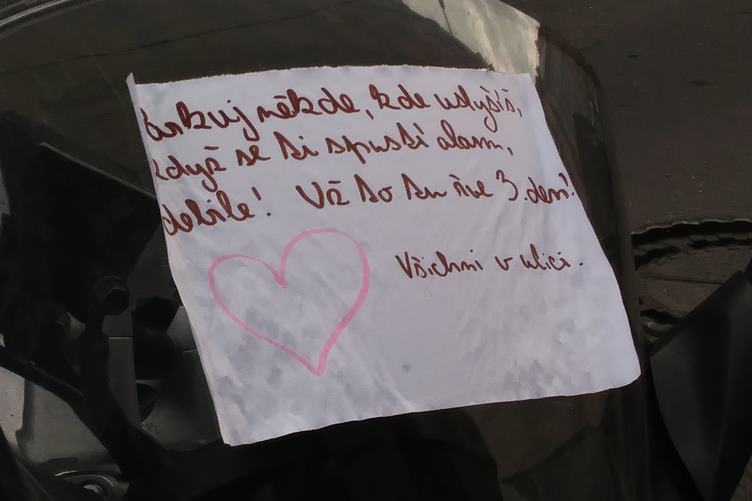 Parkuj někde, kde uslyšíš,
když se ti spustí alarm,
debile! Už to tu řve 3. den!
Všichni v ulici.